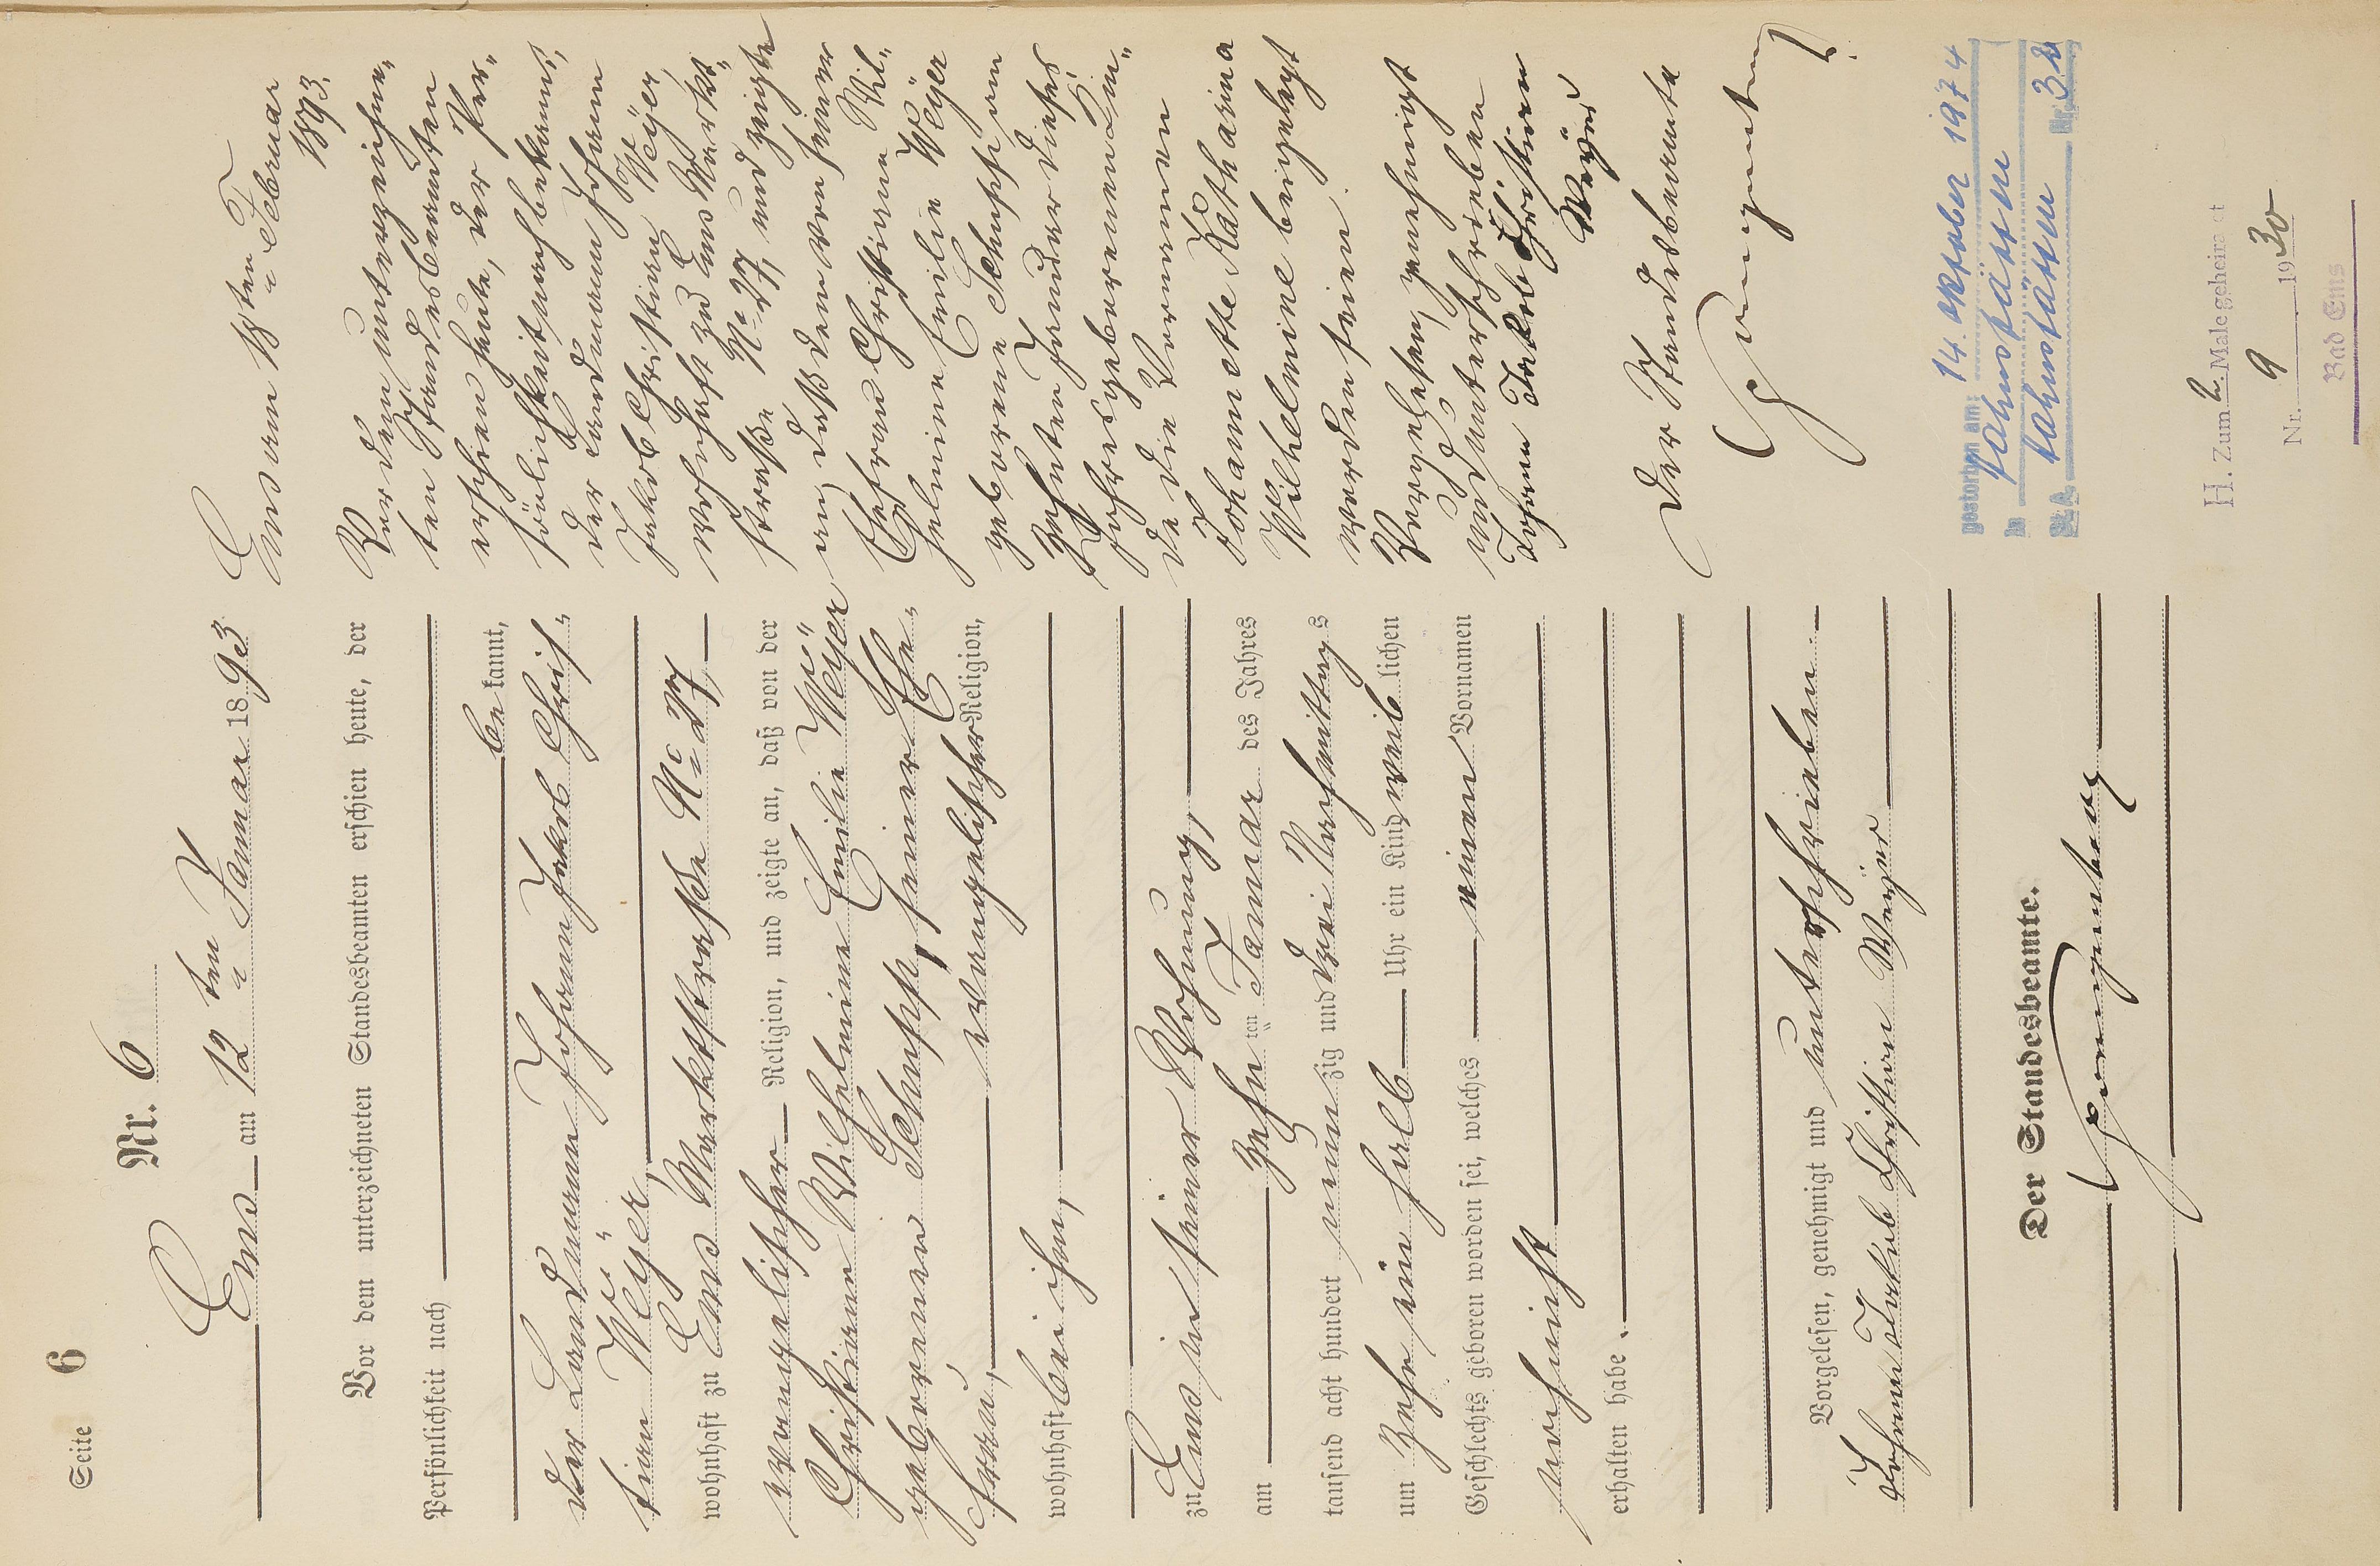 Seite 6
Nr. 6
Ems am 12ten Januar 1893
Vor dem unterzeichneten Standesbeamten erschien heute, der
Persönlichkeit nach
bekannt,
der Landmann Johann Jakob Chris-
tian Weyer,
wohnhaft zu Ems Marktstraße No 27,
evangelischer Religion, und zeigte an, daß von der
Christiane Wilhelmine Emilie Weyer
geborenen Schupp, seiner Ehe-
frau, evangelischer Religion,
wohnhaft bei ihm,
zu Ems in seiner Wohnung,
am zehnten Januar des Jahres
tausend acht hundert neunzig und drei Nachmittags
um zehn ein halb Uhr ein Kind weiblichen
Geschlechts geboren worden sei, welches einen Vornamen
noch nicht
erhalten habe.
Vorgelesen, genehmigt und unterschrieben
Johann Jakob Christian Weyer
Der Standesbeamte.
Ems am 18ten Februar
1893.
Vor dem unterzeichne-
ten Standesbeamten
erschien heute, der Per-
sönlichkeit nach bekannt,
der Landmann Johann
Jakob Christian Weyer,
wohnhaft zu Ems Markt-
straße No 27, und zeigte
an, daß dem von seiner
Ehefrau Christiane Wil-
helmine Emilie Weyer
geborene Schupp am
zehnten Januar dieses
Jahres geborenen Kin-
de die Vornamen
Johannette Katharina
Wilhelmine beigelegt
worden seien.
Vorgelesen, genehmigt
und unterschrieben
Johann Jakob Christian
Weyer
Der Standesbeamte
gestorben am: 14. Oktober 1974
in Lahnstein
St.A. Lahnstein Nr. 32
H. Zum 2. Male geheiratet
Nr. 9 1930
Bad Ems